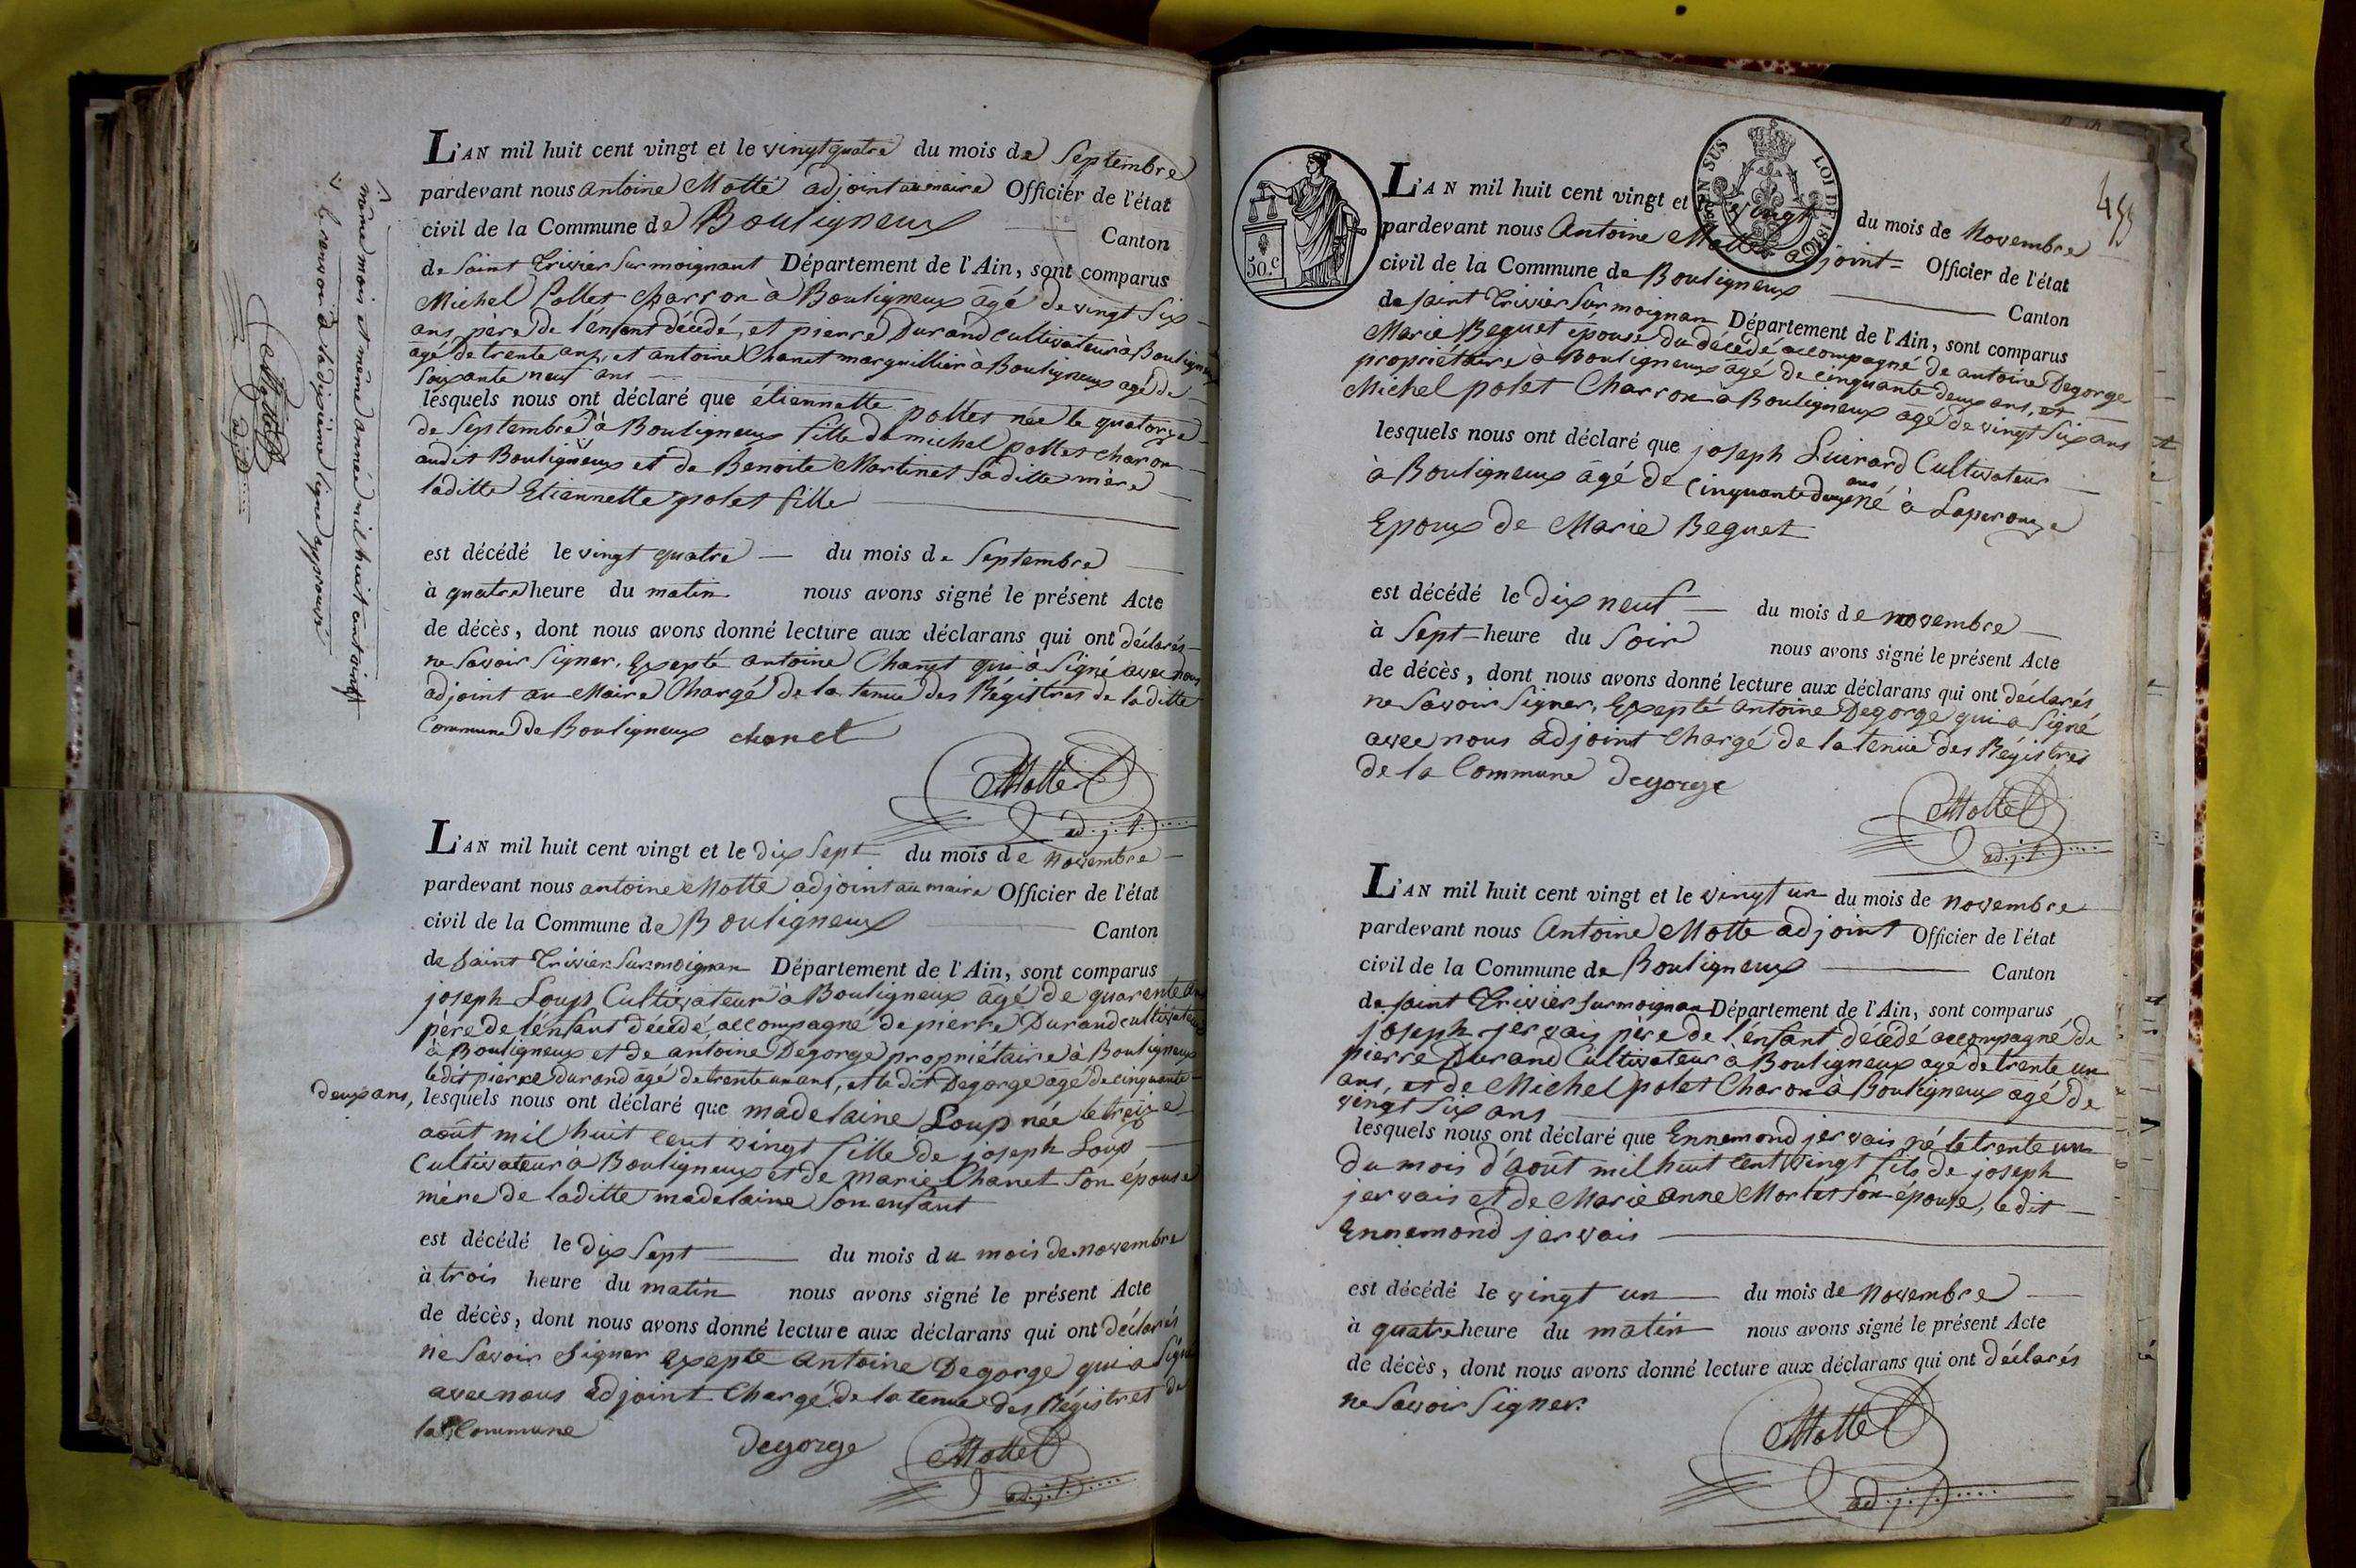 L'AN mil huit cent vingt et le vingt quatre du mois de Septembre
pardevant nous antoine Motte adjoint au maire Officier de l'état
civil de la Commune de Bouligneux Canton
de Saint Trivier Sur moignant Département de l'Ain, sont comparus
Michel Pollet charron à Bouligneux âgé de vingt Six
ans, père de l'enfant décédé, et pierre Durand cultivateur à Bouligneux
agé de trente ans, et antoine Chanet marguillier à Bouligneux agé de
Soixante neuf ans
lesquels nous ont déclaré que étiennette pollet née le quatorze
de Septembre à Bouligneux fille de michel pollet charon
audit Bouligneux et de Benoite Martinet Saditte mère
laditte Etiennette polet fille
est décédé le vingt quatre du mois de Septembre
à quatre heure du matin nous avons signé le présent Acte
de décès, dont nous avons donné lecture aux déclarans qui ont déclarés
ne Savoir Signer, Exepté antoine Chanet qui à Signé avec nous
adjoint au Maire Chargé de la tenue des Régistres de laditte
Commune de Bouligneux chanel
Motte
adjt
même mois et même année mil huit cent vingt
le renvoi à la dixième ligne approuvé
Motte
adjt
L'AN mil huit cent vingt et le dix Sept du mois de novembre
pardevant nous antoine Motte adjoint au maire Officier de l'état
civil de la Commune de Bouligneux Canton
de Saint Trivier Sur moignan Département de l'Ain, sont comparus
joseph Loup Cultivateur à Bouligneux âgé de quarente ans
père de l'énfant décédé, accompagné de pierre Durand cultivateur
à Bouligneux et de antoine Degorge propriétaire à Bouligneux
ledit pierre durand âgé de trente un ans, et le dit Degorge âgé de cinquante
deux ans, lesquels nous ont déclaré que madelaine Loup née le treize
août mil huit cent vingt fille de joseph Loup
Cultivateur à Bouligneux et de marie Chanet Son épouse
mère de laditte madelaine Son enfant
est décédé le dix Sept du mois du mois de novembre
à trois heure du matin nous avons signé le présent Acte
de décès, dont nous avons donné lecture aux déclarans qui ont déclarés
ne Savoir Signer exepte antoine Degorge qui a Signé
avec nous adjoint Chargé de la tenue des Régistres de
la Commune
degorge Motte
adjt
50.c
LOI DE 1816
L'AN mil huit cent vingt et vingt du mois de Novembre
pardevant nous Antoine Motte adjoint Officier de l'état
civil de la Commune de Bouligneux Canton
de saint Trivier Sur moignan Département de l'Ain, sont comparus
Marie Beguet épouse du décédé accompagné de antoine Degorge
propriétaire à Bouligneux âgé de cinquante deux ans, et
Michel polet Charron à Bouligneux âgé de vingt Six ans
lesquels nous ont déclaré que joseph Luirard Cultivateur
à Bouligneux âgé de Cinquante deux ans né à Laperouze
Epoux de Marie Beguet
est décédé le dix neuf du mois de novembre
à Sept heure du Soir nous avons signé le présent Acte
de décès, dont nous avons donné lecture aux déclarans qui ont déclarés
ne Savoir Signer, Exepté antoine Degorge qui a Signé
avec nous adjoint Chargé de la tenue des Régistres
de la Commune degorge
Motte
adjt
L'AN mil huit cent vingt et le vingt un du mois de novembre
pardevant nous Antoine Motte adjoint Officier de l'état
civil de la Commune de Bouligneux Canton
de saint Trivier Sur moignan Département de l'Ain, sont comparus
joseph jervais père de l'énfant décédé accompagné de
pierre Durand Cultivateur a Bouligneux agé de trente un
ans, et de Michel polet Charon à Bouligneux agé de
vingt Six ans
lesquels nous ont déclaré que Ennemond jervais né le trente un
du mois d'août mil huit cent vingt fils de joseph
jervais et de Marie anne Morlet Son épouse, le dit
Ennemond jervais
est décédé le vingt un du mois de Novembre
à quatre heure du matin nous avons signé le présent Acte
de décès, dont nous avons donné lecture aux déclarans qui ont déclarés
ne Savoir Signer.
Motte
adjt